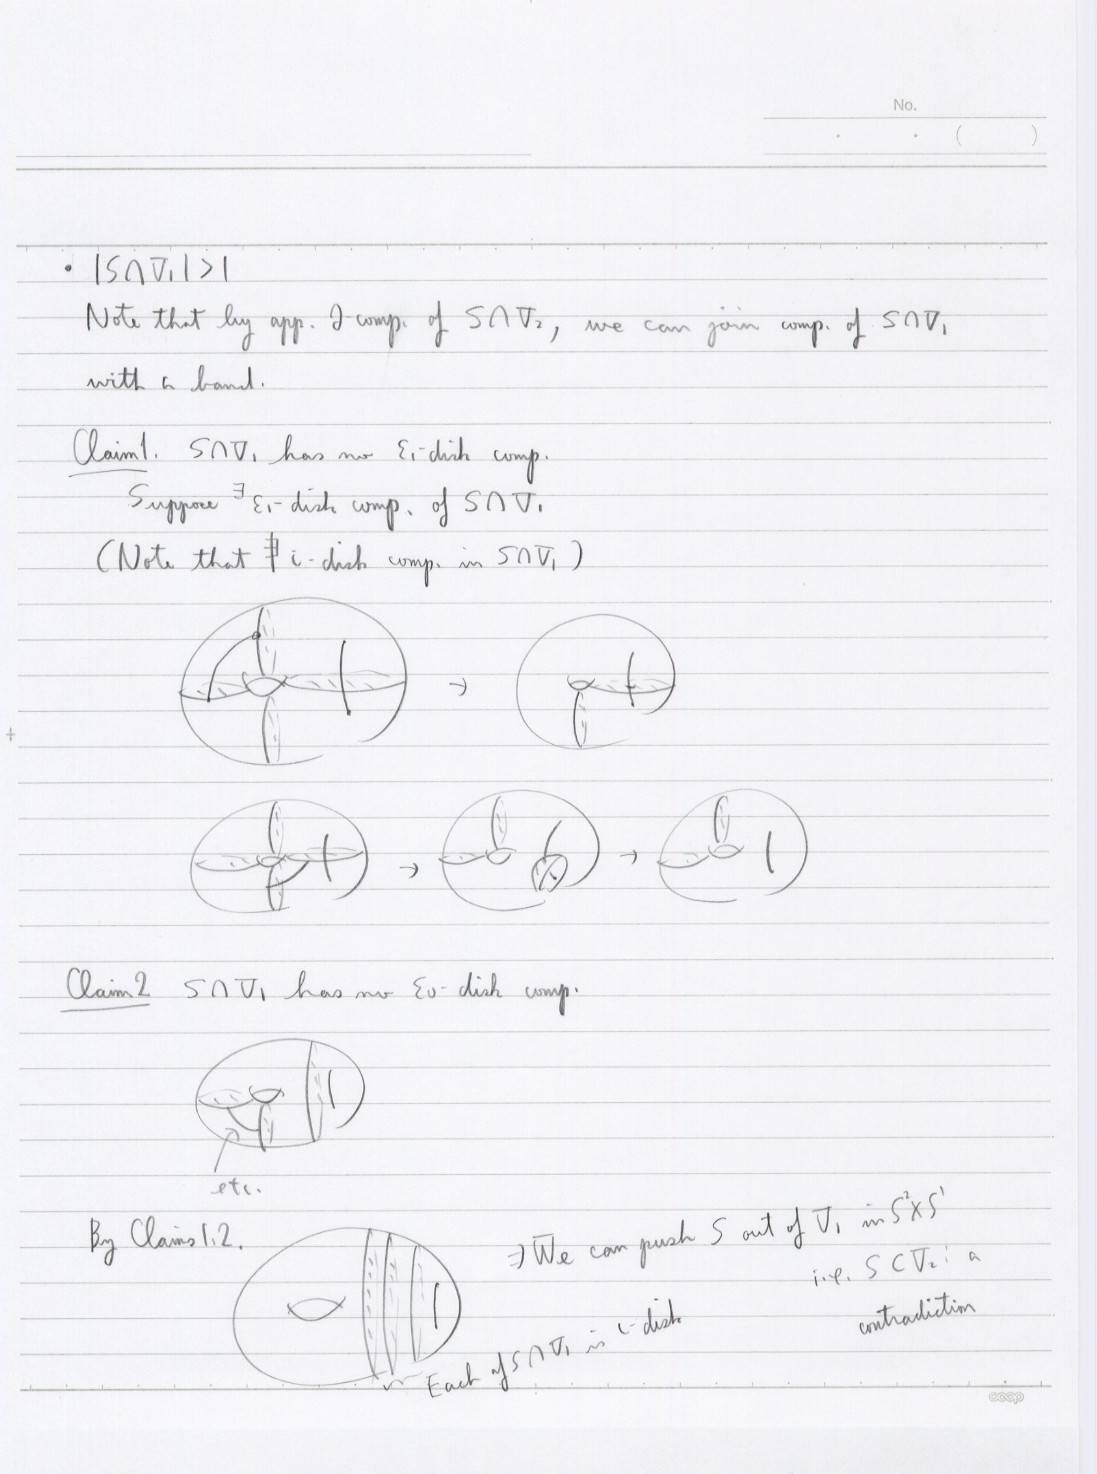 No.
· · ( )
• |S∩V₁|>1
Note that by app. ∂-comp. of S∩V₂, we can join comp. of S∩V₁
with a band.
Claim1. S∩V₁ has no ε₁-disk comp.
Suppose ∃ε₁-disk comp. of S∩V₁
(Note that ∄ i-disk comp. in S∩V₁)
→
→ →
Claim2 S∩V₁ has no ε₀-disk comp.
etc.
By Claims1,2.
⇒ We can push S out of V₁ in S²×S¹
i.e. S⊂V₂ : a
contradiction
Each of S∩V₁ is i-disk
coop